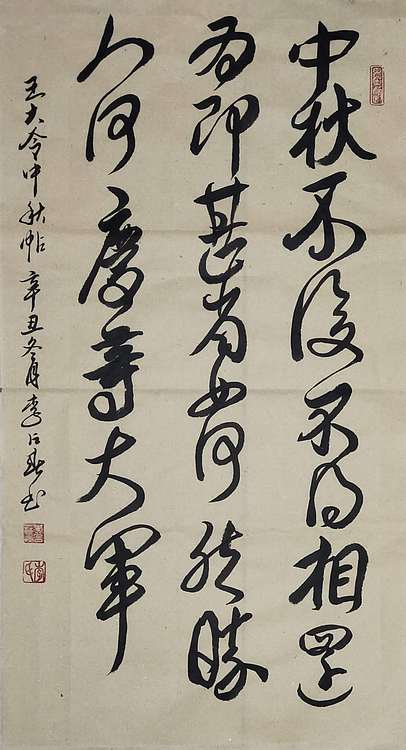 中秋不復不得相還
為即甚省如何然勝
人何慶等大軍
王大令中秋帖辛丑冬月李石春書